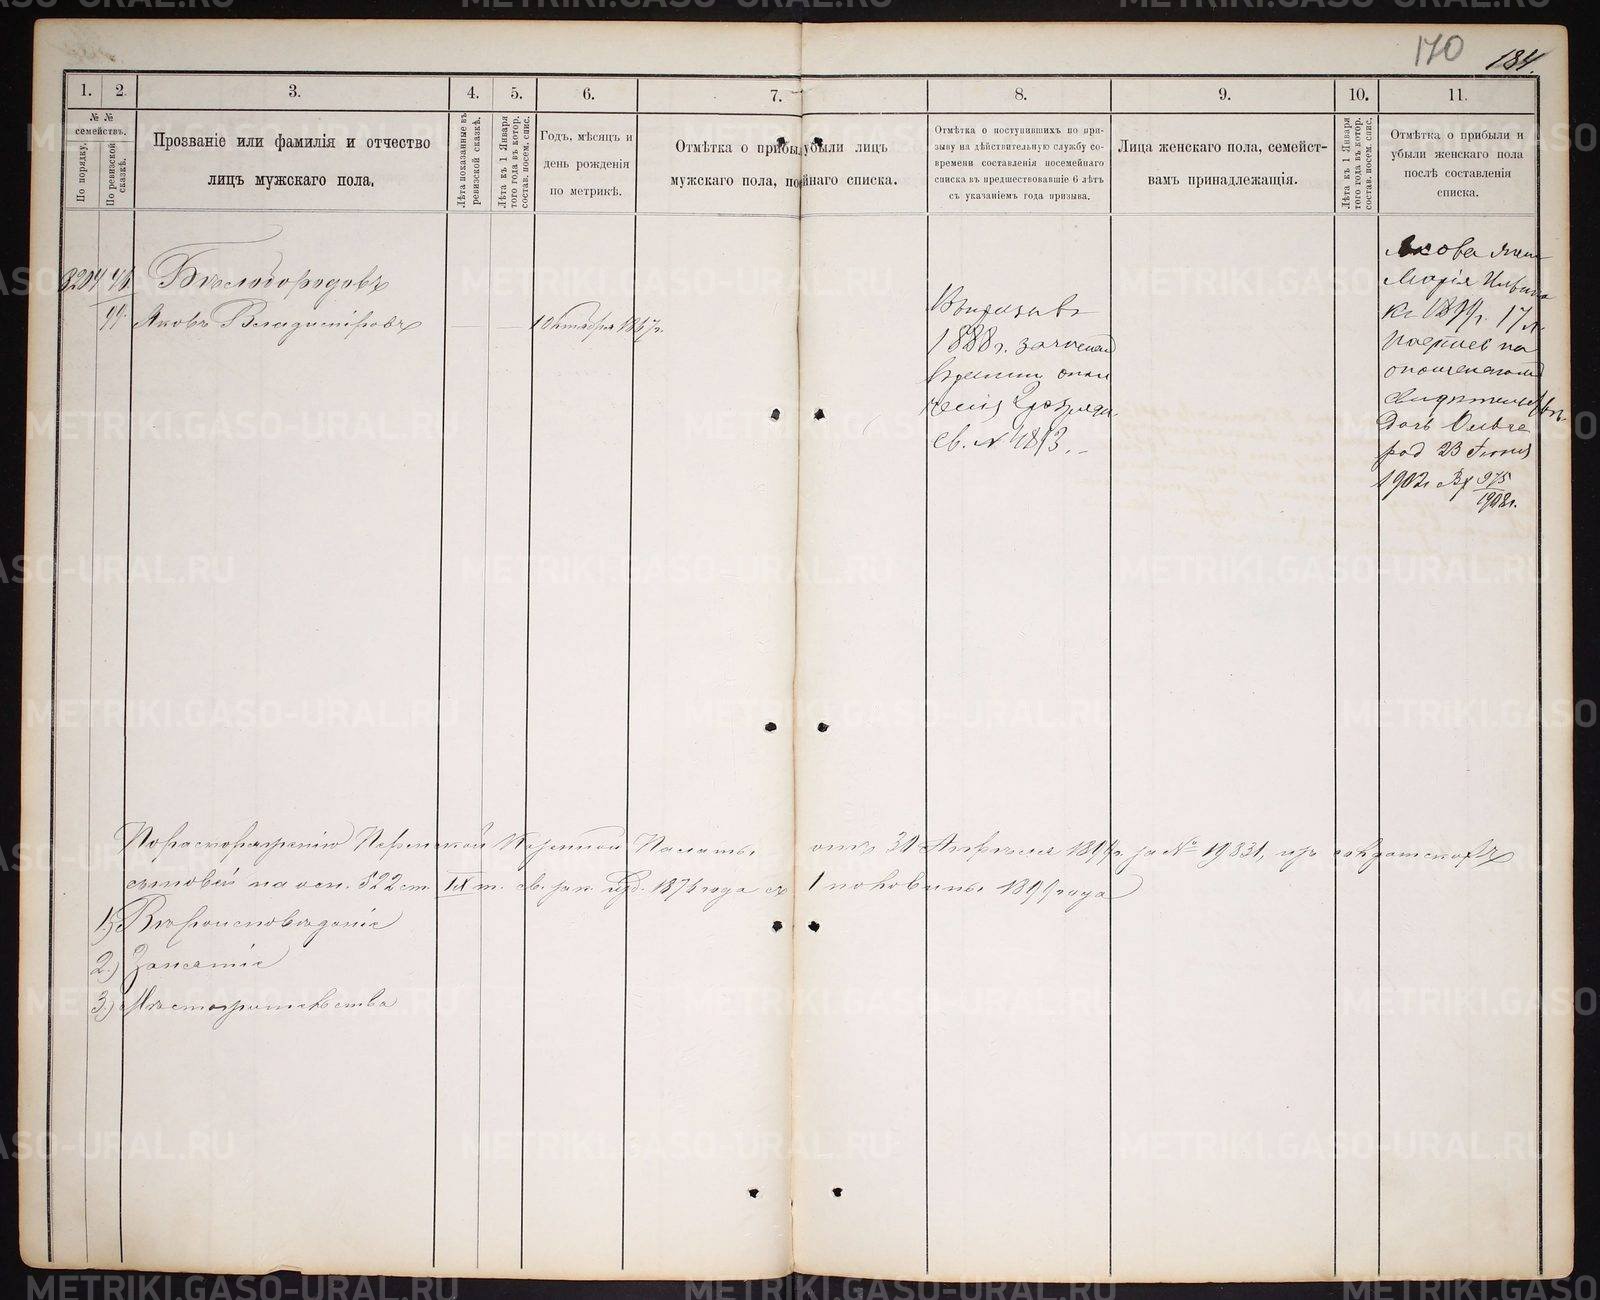 170
184.
1.
2.
3.
4.
5.
6.
7.
8.
9.
10.
11.
№ №
семействъ.
По порядку.
По ревизской
сказкѣ.
Прозваніе или фамилія и отчество
лицъ мужскаго пола.
Лѣта показанныя въ
ревизской сказкѣ.
Лѣта къ 1 Января
того года въ котор.
состав. посем. спис.
Годъ, мѣсяцъ и
день рожденія
по метрикѣ.
Отмѣтка о прибыли убыли лицъ
мужскаго пола, по йнаго списка.
Отмѣтка о поступившихъ по при-
зыву на дѣйствительную службу со-
времени составленія посемейнаго
списка въ предшествовавшіе 6 лѣтъ
съ указаніемъ года призыва.
Лица женскаго пола, семейст-
вамъ принадлежащія.
Лѣта къ 1 Января
того года въ котор.
состав. посем. спис.
Отмѣтка о прибыли и
убыли женскаго пола
послѣ составленія
списка.
Бѣлобородовъ
Яковъ Владиміровъ
1 Октября 1867 г.
Въ призывъ
1888 г. зачисленъ
въ
2 разряда
св. № 4813.
Якова жена
Марія
къ 1899 г. 17 л.
Дочь Ольга
род 23 Іюня
1902 г. Вх 975
1908 г.
По распоряженію Пермской Казенной Палаты отъ 30 Апрѣля 1899 г. за № 19831, изъ солдатскихъ
сыновей на осн. 522 ст. IX т. св. зак. изд. 1876 года съ 1 половины 1899 года
1) Вѣроисповѣданіе
2.) Занятіе
3.) Мѣстожительства
METRIKI.GASO-URAL.RU